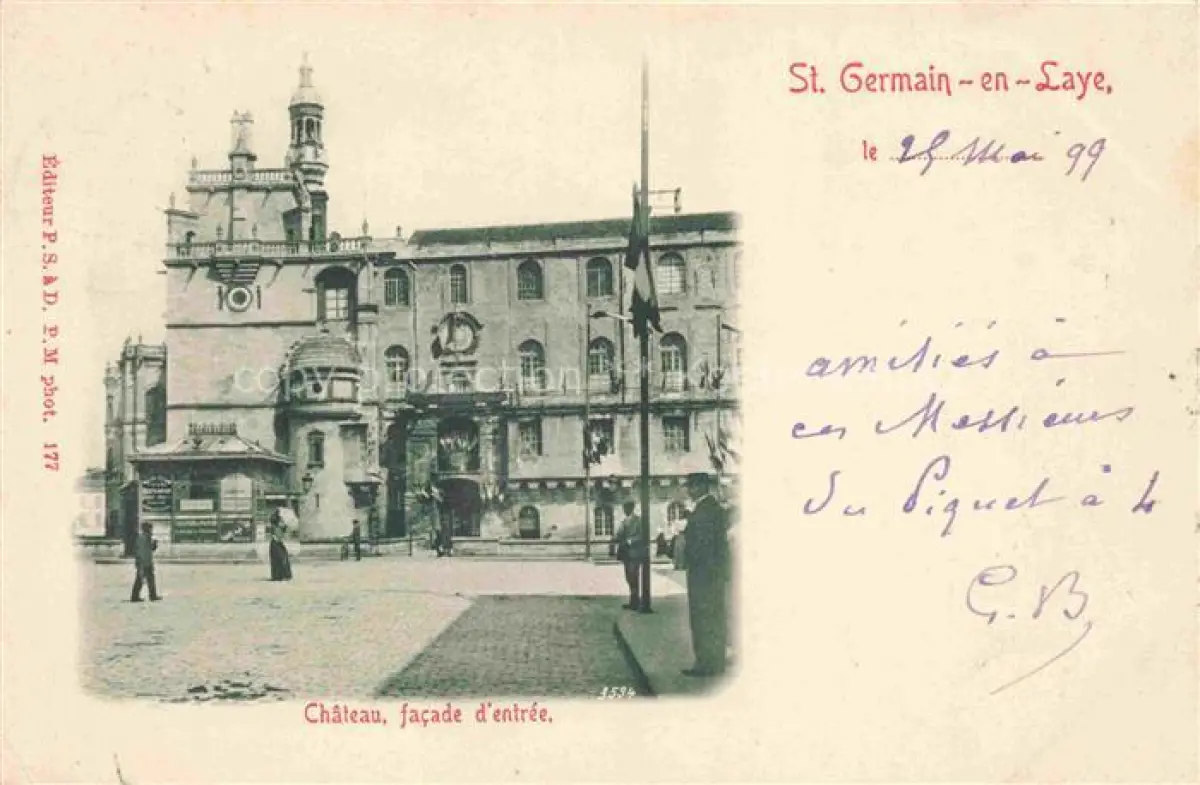 St. Germain-en-Laye,
le 25 Mai 99
Éditeur P. S. à D. P. M phot. 177
amitiés à
ces Messieurs
du Piquet à 4
G. B
1594
Château, façade d'entrée.